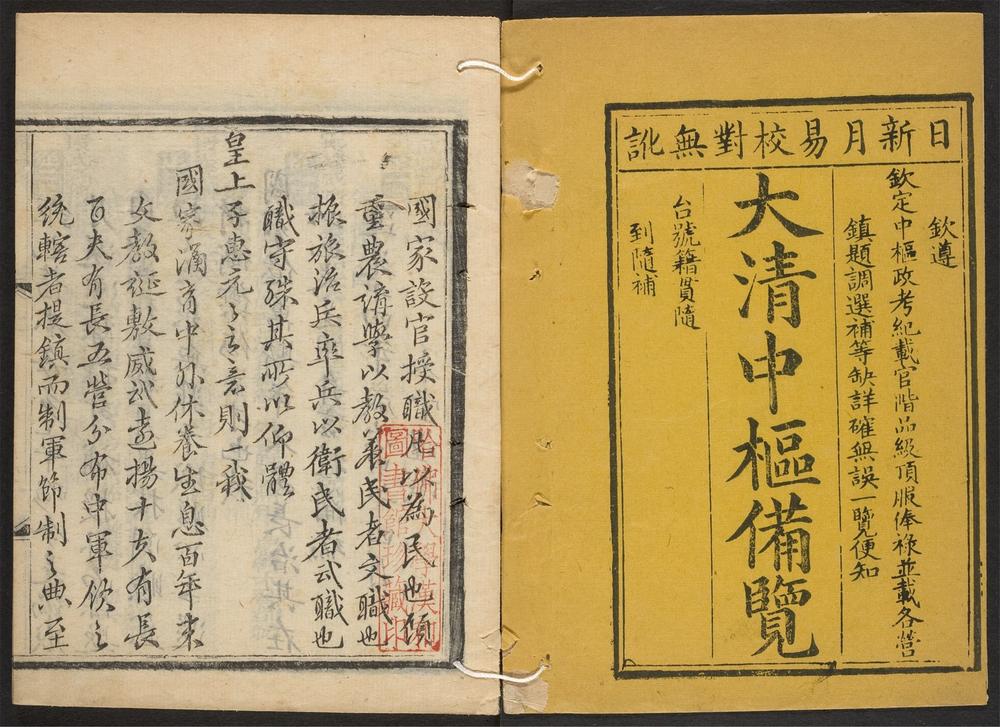 日新月易校對無訛
欽遵
欽定中樞政考紀載官階品級頂服俸祿並載各營
鎮題調選補等缺詳確無誤一覽便知
大清中樞備覽
台號籍貫隨
到隨補
國家設官授職所以為民也顧
重農講學以教養民者文職也
振旅治兵率兵以衛民者武職也
職守殊其所以仰體
皇上子惠元元之意則一也我
國家涵育中外休養生息百年來
文教誕敷威武遠揚十夫有長
百夫有長五營分布中軍領之
統轄者提鎮而制軍節制之典至